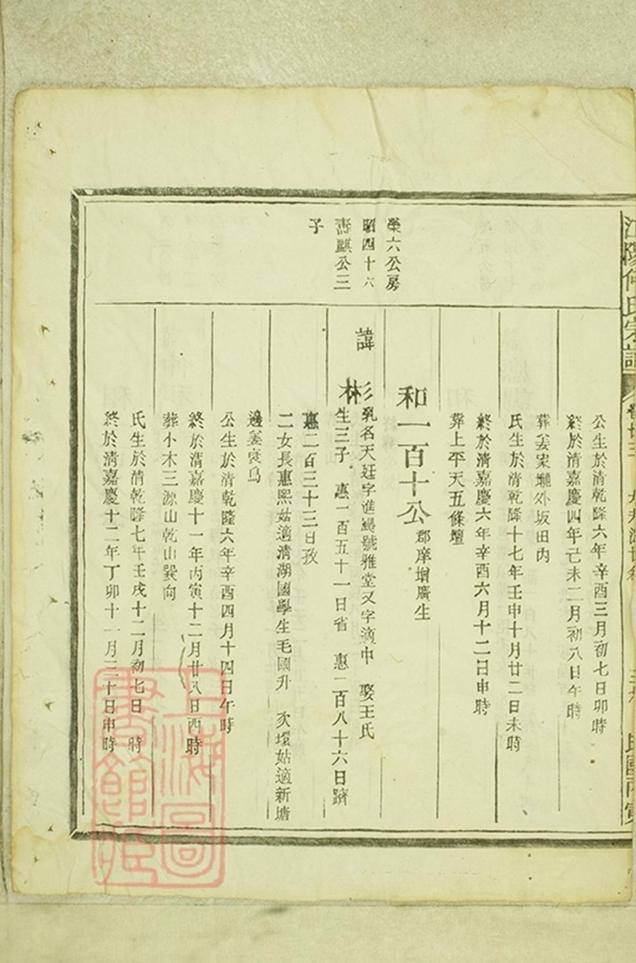 江陽何氏宗譜
公生於清乾隆六年辛酉三月初七日卯時
終於清嘉慶四年己未二月初八日午時
葬姜家壠外坂田内
氏生於清乾隆十七年壬申十月廿二日未時
終於清嘉慶六年辛酉六月十二日申時
葬上平天五條壠
榮六公房
昭四十六
壽麒公三
子
和一百十公 郡庠增廣生
諱 彬 乳名天廷字進颺號雅堂又字滴中 娶王氏
生三子 惠一百五十一日省 惠一百八十六日躋
惠二百三十三日孜
二女長惠熙姑適清湖國學生毛國升 次環姑適新塘
邊姜寅烏
公生於清乾隆六年辛酉四月十四日午時
終於清嘉慶十一年丙寅十二月廿八日酉時
葬小木三源山乾山巽向
氏生於清乾隆七年壬戌十二月初七日 時
終於清嘉慶十二年丁卯十一月三十日申時
上海圖
書館藏